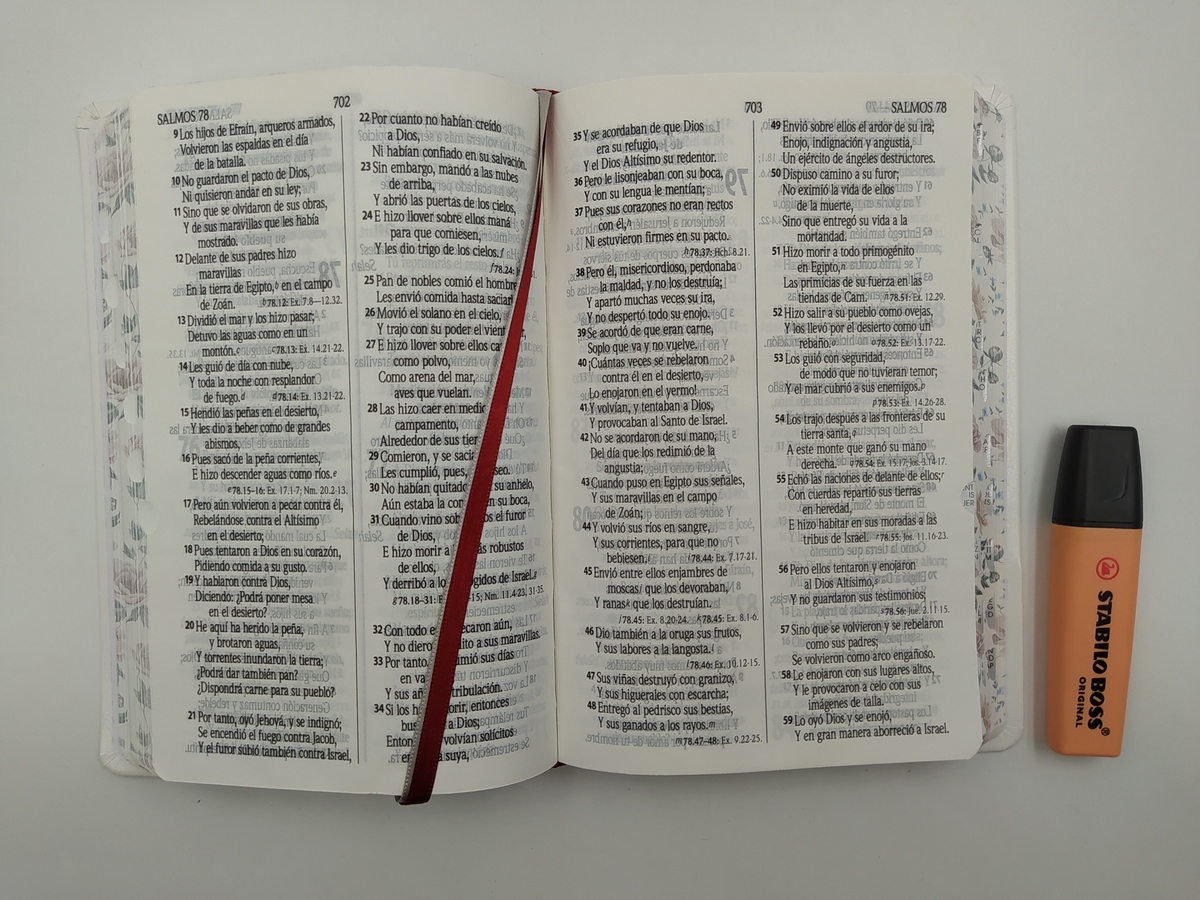 702
SALMOS 78
9 Los hijos de Efraín, arqueros armados,
Volvieron las espaldas en el día
de la batalla.
10 No guardaron el pacto de Dios,
Ni quisieron andar en su ley;
11 Sino que se olvidaron de sus obras,
Y de sus maravillas que les había
mostrado.
12 Delante de sus padres hizo
maravillas
En la tierra de Egipto,b en el campo
de Zoán. b78.12: Ex. 7.8—12.32.
13 Dividió el mar y los hizo pasar;
Detuvo las aguas como en un
montón.c c78.13: Ex. 14.21-22.
14 Les guió de día con nube,
Y toda la noche con resplandor
de fuego.d d78.14: Ex. 13.21-22.
15 Hendió las peñas en el desierto,
Y les dio a beber como de grandes
abismos,
16 Pues sacó de la peña corrientes,
E hizo descender aguas como ríos.e
e78.15-16: Ex. 17.1-7; Nm. 20.2-13.
17 Pero aún volvieron a pecar contra él,
Rebelándose contra el Altísimo
en el desierto;
18 Pues tentaron a Dios en su corazón,
Pidiendo comida a su gusto.
19 Y hablaron contra Dios,
Diciendo: ¿Podrá poner mesa
en el desierto?
20 He aquí ha herido la peña,
y brotaron aguas,
Y torrentes inundaron la tierra;
¿Podrá dar también pan?
¿Dispondrá carne para su pueblo?
21 Por tanto, oyó Jehová, y se indignó;
Se encendió el fuego contra Jacob,
Y el furor subió también contra Israel,
22 Por cuanto no habían creído
a Dios,
Ni habían confiado en su salvación.
23 Sin embargo, mandó a las nubes
de arriba,
Y abrió las puertas de los cielos,
24 E hizo llover sobre ellos maná
para que comiesen,
Y les dio trigo de los cielos.f
f78.24:
25 Pan de nobles comió el hombre
Les envió comida hasta saciar
26 Movió el solano en el cielo,
Y trajo con su poder el vient
27 E hizo llover sobre ellos ca
como polvo,
Como arena del mar,
aves que vuelan.
28 Las hizo caer en medio
campamento,
Alrededor de sus tien
29 Comieron, y se sacia
Les cumplió, pues, seo.
30 No habían quitado su anhelo,
Aún estaba la co en su boca,
31 Cuando vino sob os el furor
de Dios,
E hizo morir a ás robustos
de ellos,
Y derribó a lo ogidos de Israel.g
g78.18-31: Ex -15; Nm. 11.4-23, 31-35.
32 Con todo e ecaron aún,
Y no diero dito a sus maravillas.
33 Por tanto, mió sus días
en va
Y sus añ tribulación.
34 Si los h orir, entonces
bus a Dios;
Enton volvían solícitos
en a suya,
703
SALMOS 78
35 Y se acordaban de que Dios
era su refugio,
Y el Dios Altísimo su redentor.
36 Pero le lisonjeaban con su boca,
Y con su lengua le mentían;
37 Pues sus corazones no eran rectos
con él,h
Ni estuvieron firmes en su pacto.
h78.37: Hch. 8.21.
38 Pero él, misericordioso, perdonaba
la maldad, y no los destruía;
Y apartó muchas veces su ira,
Y no despertó todo su enojo.
39 Se acordó de que eran carne,
Soplo que va y no vuelve.
40 ¡Cuántas veces se rebelaron
contra él en el desierto,
Lo enojaron en el yermo!
41 Y volvían, y tentaban a Dios,
Y provocaban al Santo de Israel.
42 No se acordaron de su mano,
Del día que los redimió de la
angustia;
43 Cuando puso en Egipto sus señales,
Y sus maravillas en el campo
de Zoán;
44 Y volvió sus ríos en sangre,
Y sus corrientes, para que no
bebiesen.i i78.44: Ex. 7.17-21.
45 Envió entre ellos enjambres de
moscasj que los devoraban,
Y ranask que los destruían.
j78.45: Ex. 8.20-24. k78.45: Ex. 8.1-6.
46 Dio también a la oruga sus frutos,
Y sus labores a la langosta.l
l78.46: Ex. 10.12-15.
47 Sus viñas destruyó con granizo,
Y sus higuerales con escarcha;
48 Entregó al pedrisco sus bestias,
Y sus ganados a los rayos.m
m78.47-48: Ex. 9.22-25.
49 Envió sobre ellos el ardor de su ira;
Enojo, indignación y angustia,
Un ejército de ángeles destructores.
50 Dispuso camino a su furor;
No eximió la vida de ellos
de la muerte,
Sino que entregó su vida a la
mortandad.
51 Hizo morir a todo primogénito
en Egipto,n
Las primicias de su fuerza en las
tiendas de Cam. n78.51: Ex. 12.29.
52 Hizo salir a su pueblo como ovejas,
Y los llevó por el desierto como un
rebaño.o o78.52: Ex. 13.17-22.
53 Los guió con seguridad,
de modo que no tuvieran temor;
Y el mar cubrió a sus enemigos.p
p78.53: Ex. 14.26-28.
54 Los trajo después a las fronteras de su
tierra santa,q
A este monte que ganó su mano
derecha. q78.54: Ex. 15.17; Jos. 3.14-17.
55 Echó las naciones de delante de ellos;r
Con cuerdas repartió sus tierras
en heredad,
E hizo habitar en sus moradas a las
tribus de Israel. r78.55: Jos. 11.16-23.
56 Pero ellos tentaron y enojaron
al Dios Altísimo,s
Y no guardaron sus testimonios;
s78.56: Jue. 2.11-15.
57 Sino que se volvieron y se rebelaron
como sus padres;
Se volvieron como arco engañoso.
58 Le enojaron con sus lugares altos,
Y le provocaron a celo con sus
imágenes de talla.
59 Lo oyó Dios y se enojó,
Y en gran manera aborreció a Israel.
STABILO BOSS®
ORIGINAL